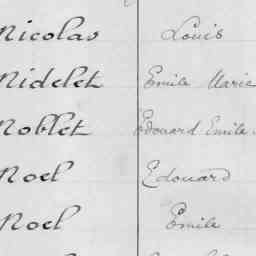 Nicolas Louis
Nidelet Emile Marie
Noblet Edouard Emile
Noel Edouard
Noel Emile